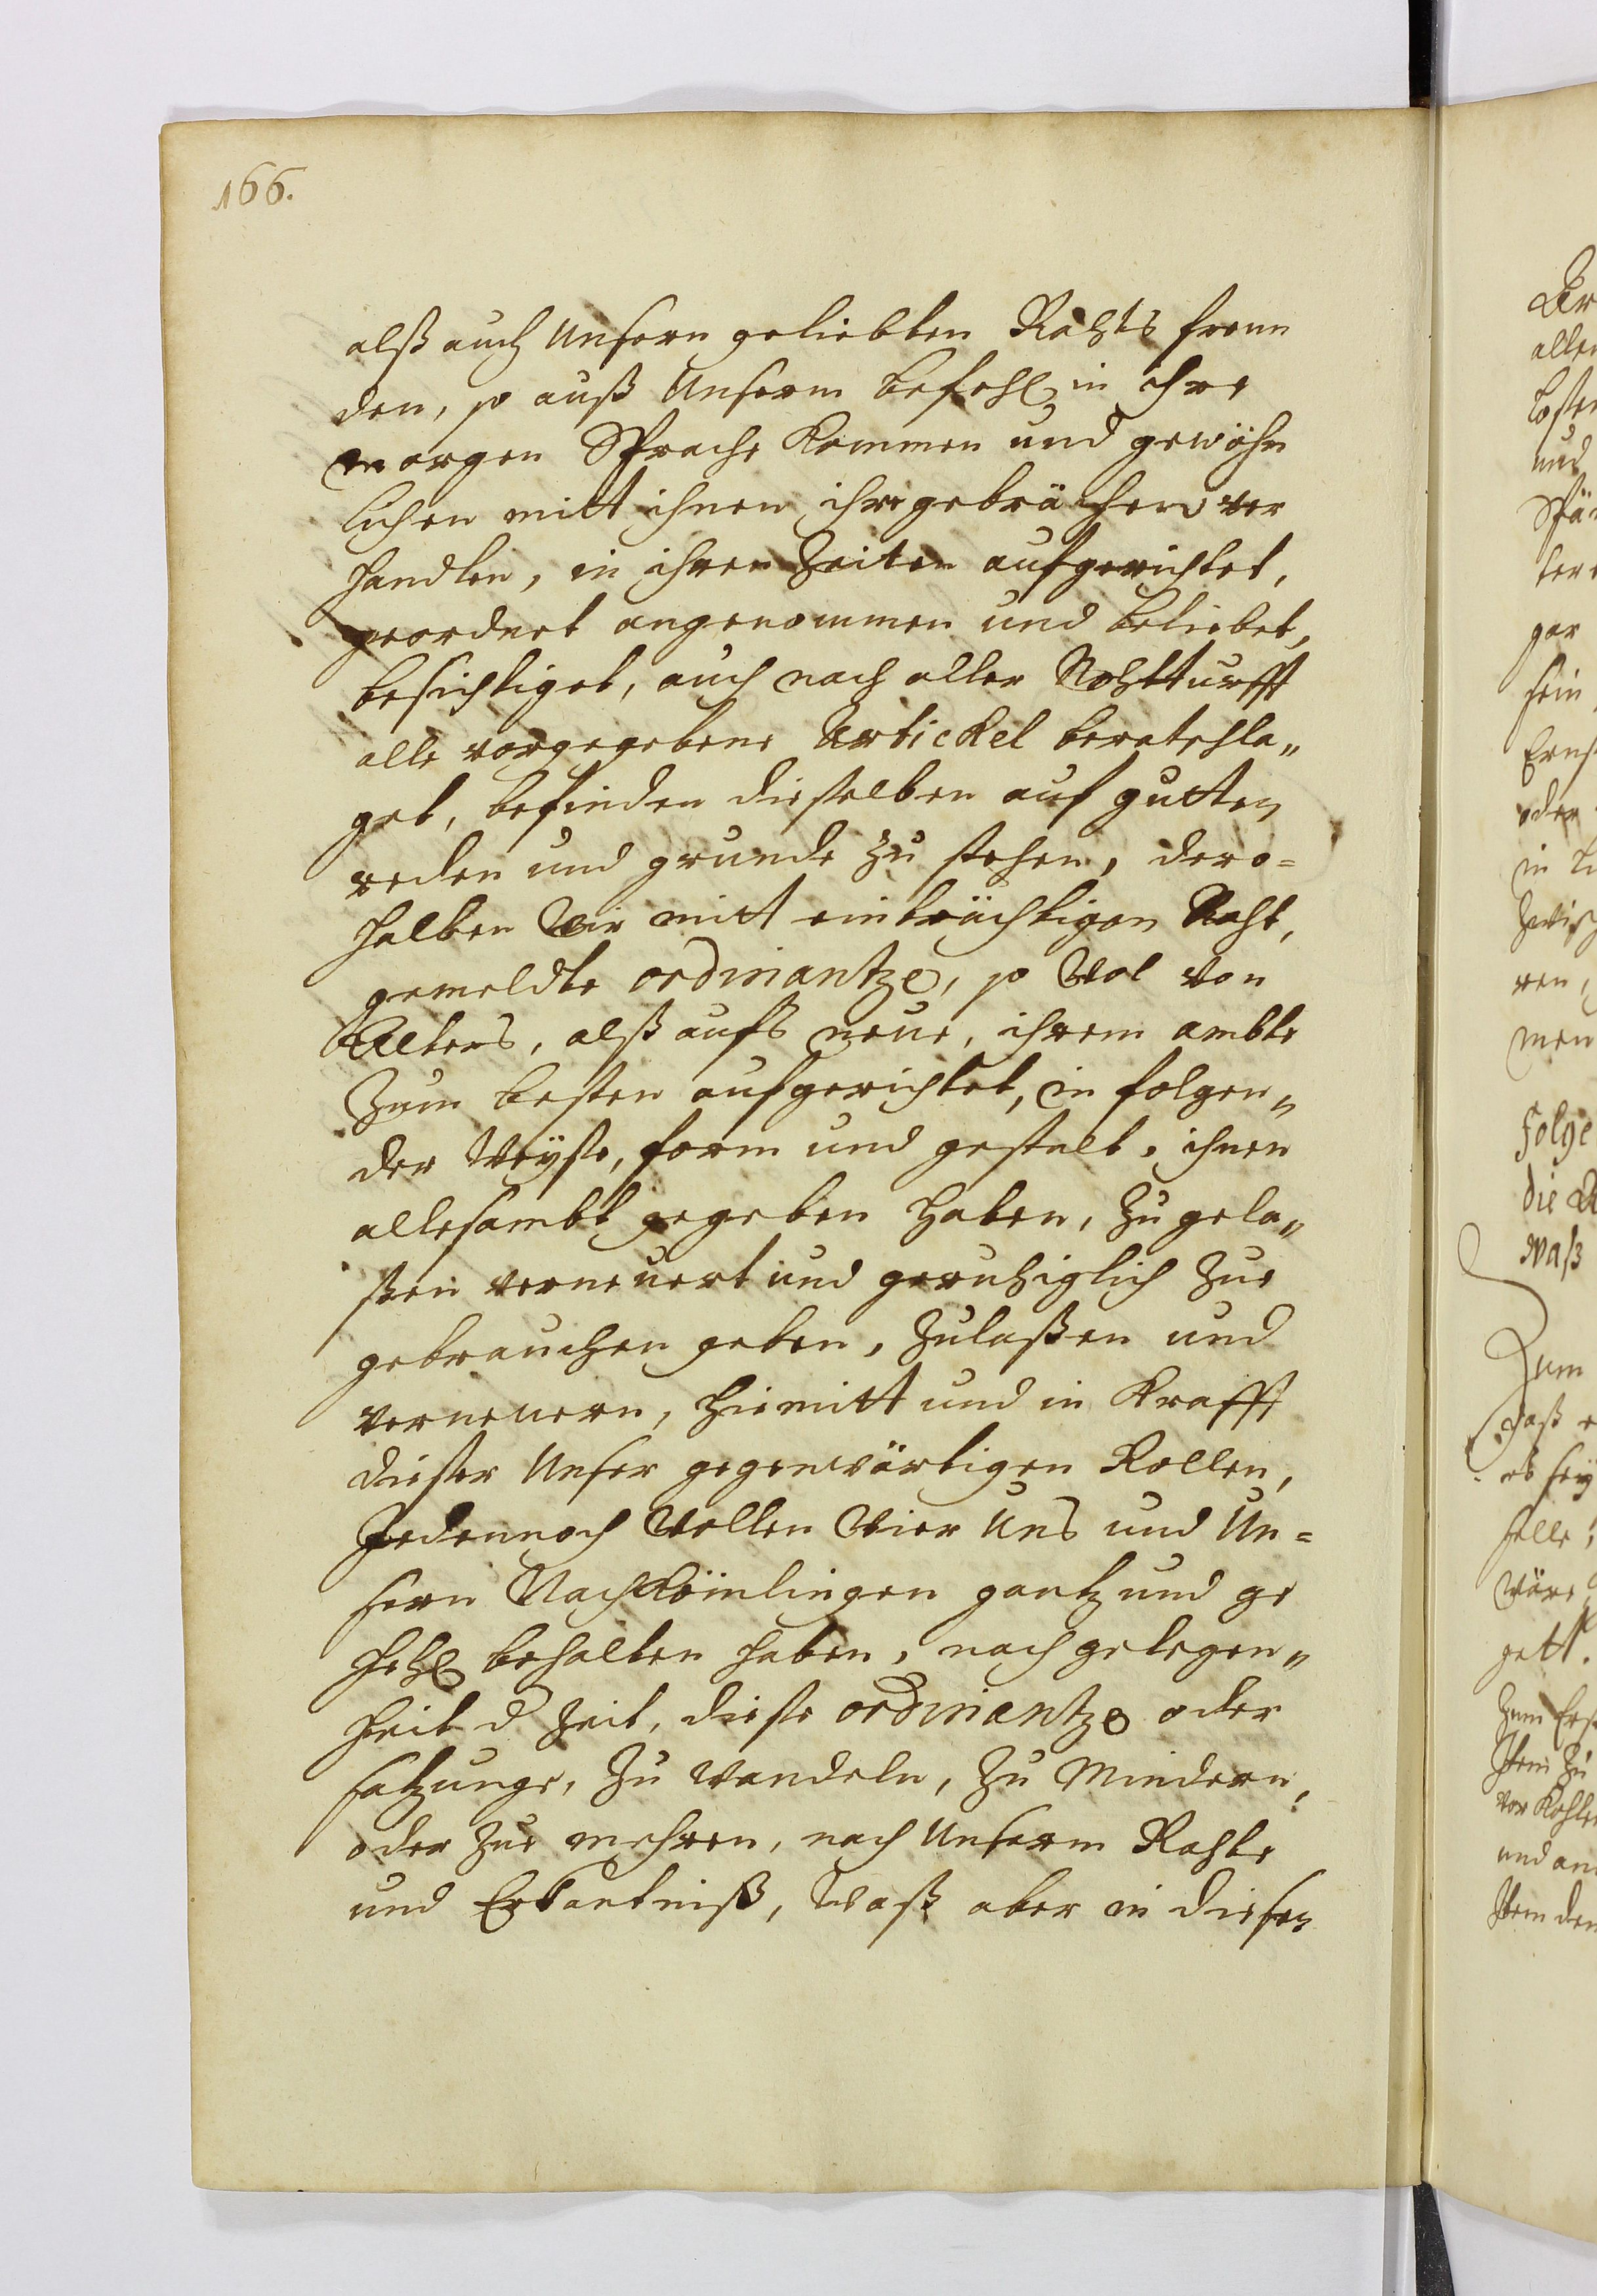 166.
alß auch Unsern geliebten Rahts freun
den, so auß Unserm befehl in ihre
morgen Sprache kommen und gewöhn
lichen mitt ihnen ihre gebräuchen ver
handlen, in ihren Zeiten aufgerichtet,
geordnet angenommen und beliebet,
besichtiget, auch nach aller Nohtturfft
alle vorgegebene Artickel beratschla„
get, befinden dieselben auf gutten
reden und grunde zu stehen, dero=
halben Wir mitt einträchtigen Raht,
gemeldte ordinantze, so Wol von
Alters, alß aufs neue, ihrem ambte
Zum besten aufgerichtet, in folgen„
der Weyße, form und gestalt, ihnen
allesambt gegeben haben, zu gela„
ßen verneuert und geruhiglich zue
gebrauchen geben, Zulaßen und
verneuern, hiemitt und in Krafft
dießer Unser gegenwärtigen Rollen,
Jedennoch Wollen Wier Uns und Un=
sern Nachkömlingen gantz und ge
hehl behalten haben, nach gelegen„
heit d Zeit, dieße ordinantze oder
satzunge, zu wandeln, zu Mindern,
oder zue mehren, nach Unserm Rahte
und Erkantniß, Waß aber in diesen
allen
und
gar
sein
oder
men
folge
die
waß
Zum
daß
wäre
Zum